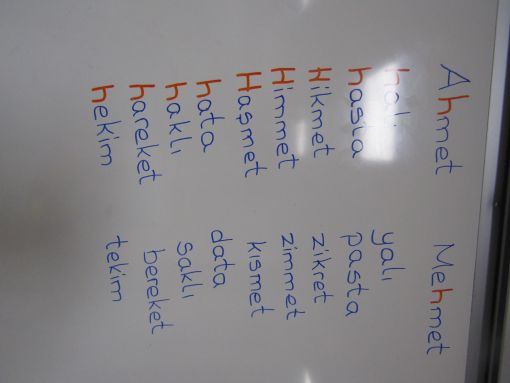 Ahmet Mehmet
halı yalı
hasta pasta
Hikmet zikret
Himmet zimmet
Haşmet kısmet
hata data
haklı saklı
hareket bereket
hekim tekim